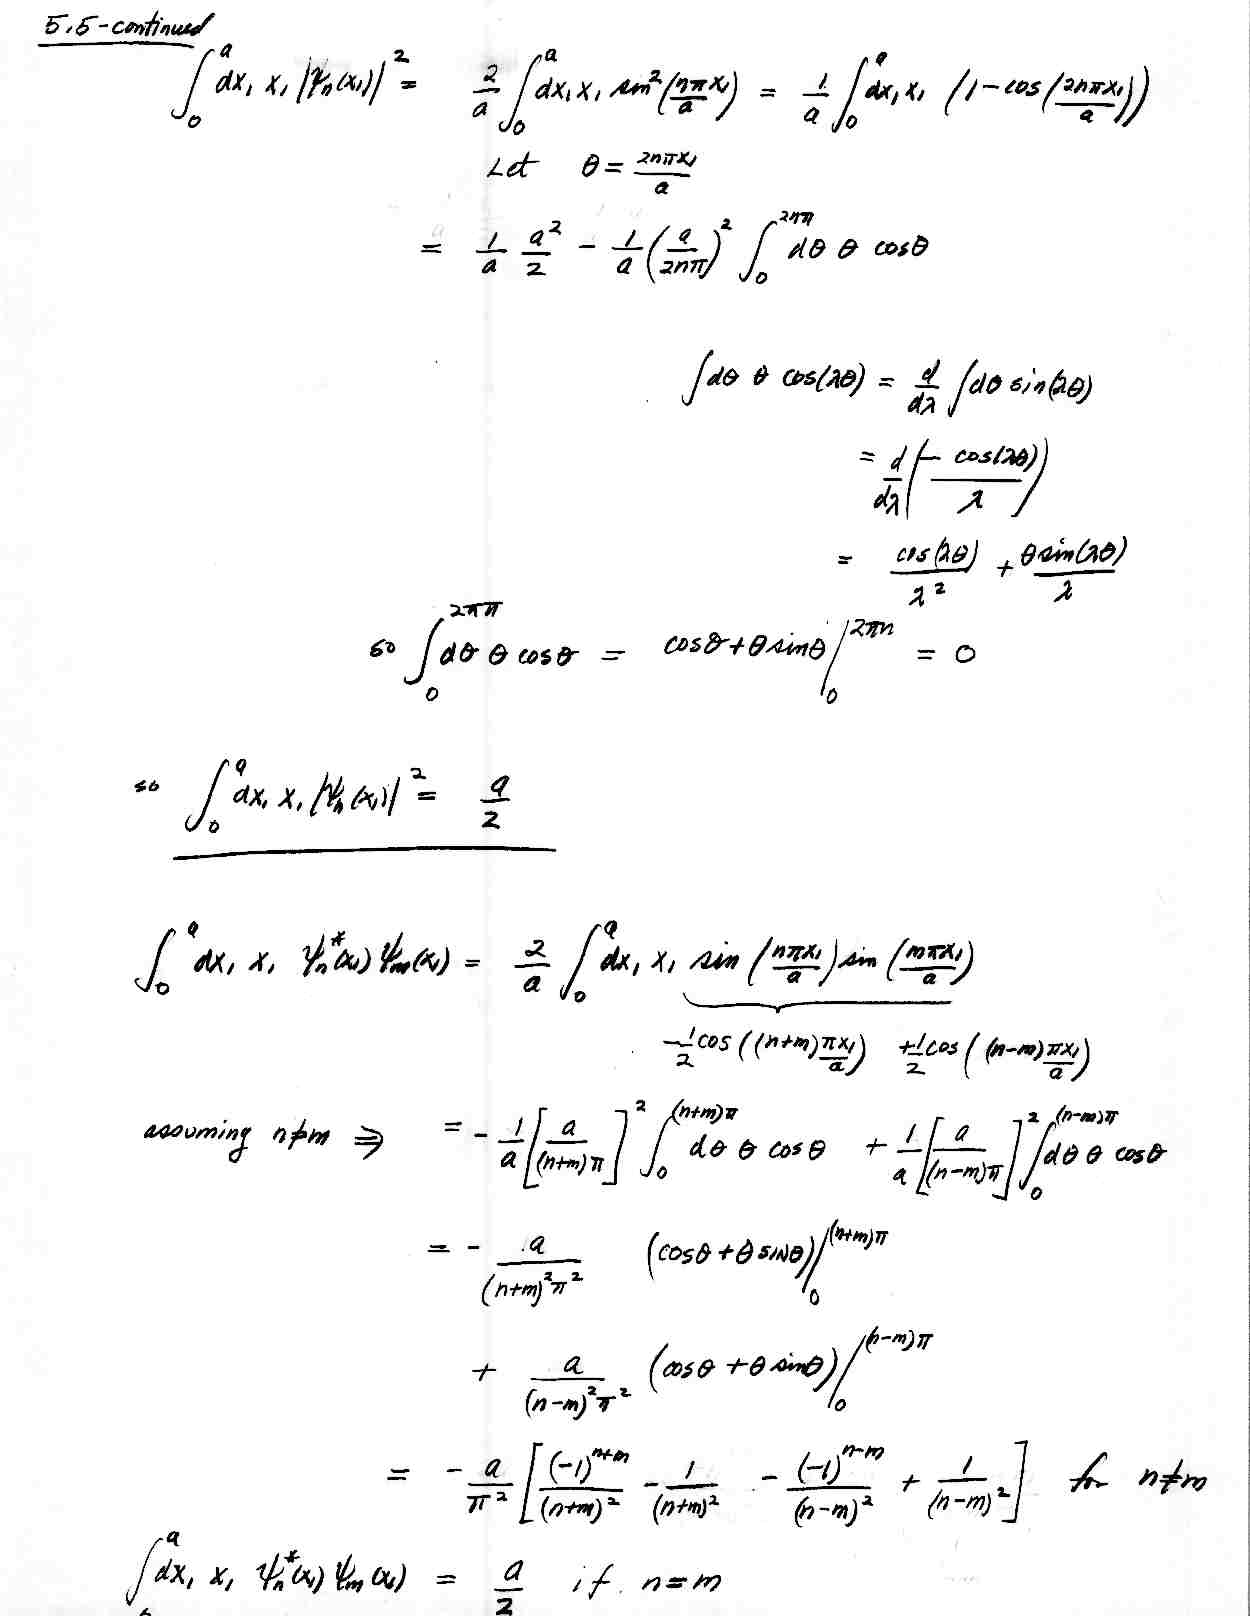 5.5-continued
∫₀ᵃ dx₁ x₁ |ψₙ(x₁)|² = 2/a ∫₀ᵃ dx₁ x₁ sin²(nπx₁/a) = 1/a ∫₀ᵃ dx₁ x₁ (1-cos(2nπx₁/a))
Let θ = 2nπx₁/a
= 1/a a²/2 - 1/a (a/2nπ)² ∫₀^{2nπ} dθ θ cosθ
∫dθ θ cos(λθ) = d/dλ ∫dθ sin(λθ)
= d/dλ (- cos(λθ)/λ)
= cos(λθ)/λ² + θsin(λθ)/λ
so ∫₀^{2nπ} dθ θ cosθ = cosθ+θsinθ |₀^{2πn} = 0
so ∫₀ᵃ dx₁ x₁ |ψₙ(x₁)|² = a/2
∫₀ᵃ dx₁ x₁ ψₙ*(x₁) ψₘ(x₁) = 2/a ∫₀ᵃ dx₁ x₁ sin(nπx₁/a) sin(mπx₁/a)
-1/2 cos((n+m)πx₁/a) +1/2 cos((n-m)πx₁/a)
assuming n≠m ⇒ = - 1/a [a/(n+m)π]² ∫₀^{(n+m)π} dθ θ cosθ + 1/a [a/(n-m)π]² ∫₀^{(n-m)π} dθ θ cosθ
= - a/(n+m)²π² (cosθ+θ sinθ)|₀^{(n+m)π}
+ a/(n-m)²π² (cosθ+θ sinθ)|₀^{(n-m)π}
= - a/π² [(-1)^{n+m}/(n+m)² - 1/(n+m)² - (-1)^{n-m}/(n-m)² + 1/(n-m)²] for n≠m
∫₀ᵃ dx₁ x₁ ψₙ*(x₁) ψₘ(x₁) = a/2 if n=m